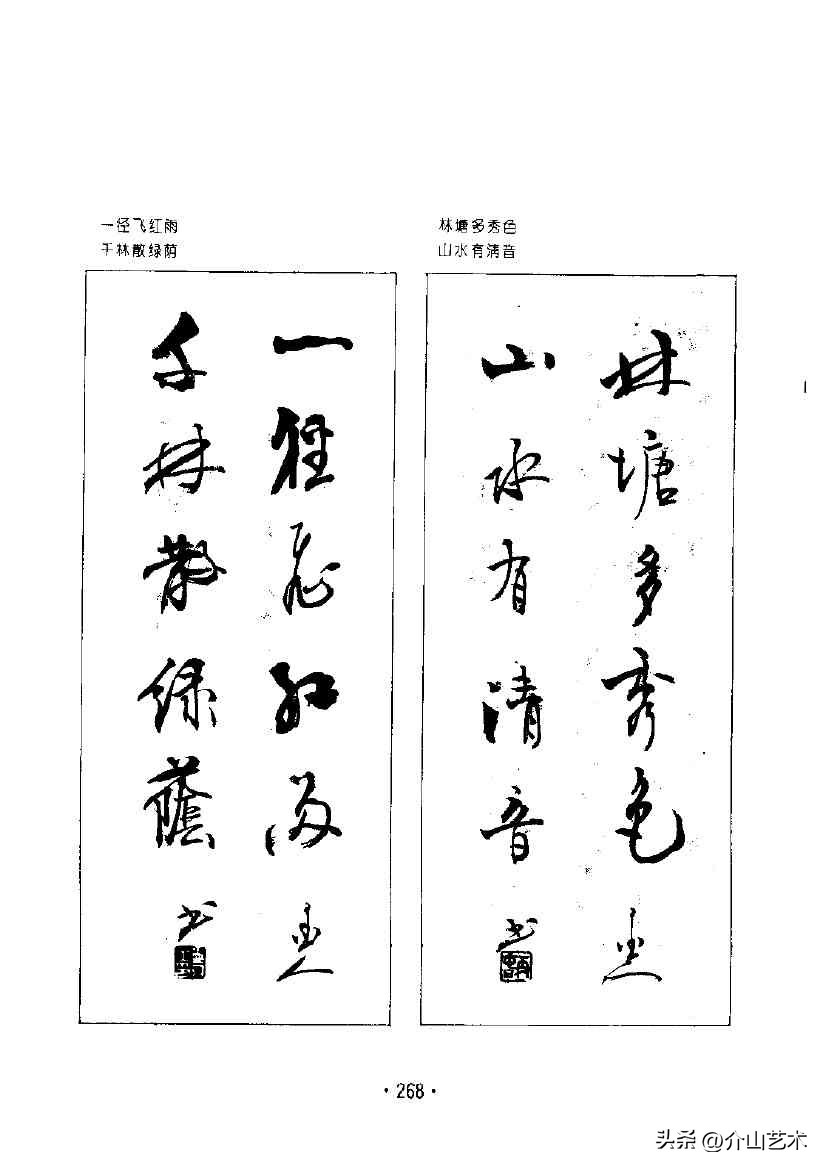 一径飞红雨
千林散绿荫
林塘多秀色
山水有清音
一径飞红雨
千林散綠蔭
书
林塘多秀色
山水有清音
书
·268·
头条@介山艺术